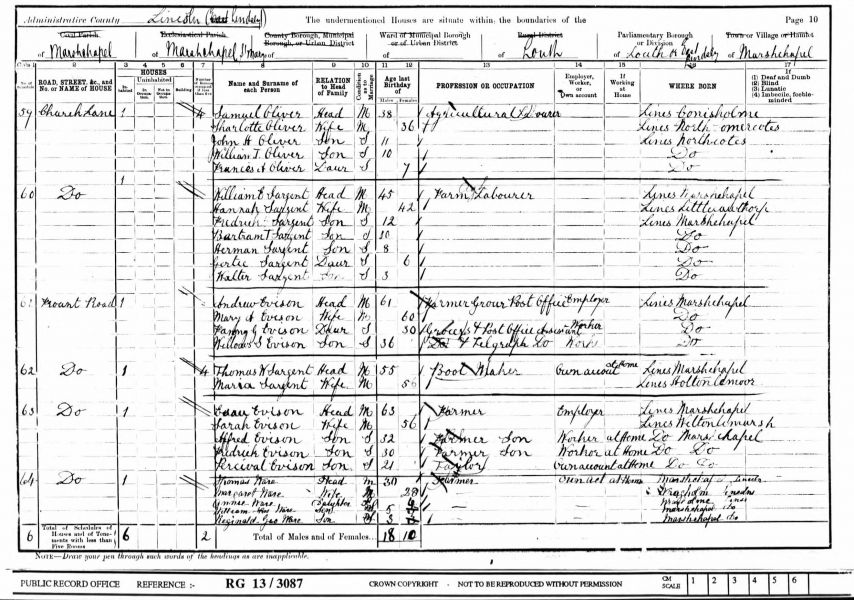 Administrative County Lincoln The undermentioned Houses are situate within the boundaries of the Page 10
Civil Parish Ecclesiastical Parish County Borough, Municipal Borough, or Urban District Ward of Municipal Borough or of Urban District Rural District Parliamentary Borough or Division Town or Village or Hamlet
of Marshchapel of Marshchapel St Mary of of of Louth of Louth or East Lindsey of Marshchapel
ROAD, STREET, &c., and No. or NAME of HOUSE HOUSES Inhabited Uninhabited In Occupation Not in Occupation Building Name and Surname of each Person RELATION to Head of Family Condition as to Marriage Age last Birthday of Males Females PROFESSION OR OCCUPATION Employer, Worker, or Own account If Working at Home WHERE BORN If (1) Deaf and Dumb (2) Blind (3) Lunatic (4) Imbecile, feeble-minded
59 Church Lane 1 4 Samuel Oliver Head M 38 Agricultural Labourer Lincs Conisholme
Charlotte Oliver Wife M 36 Lincs North Somercotes
John H Oliver Son S 11 Lincs Northcotes
William T. Oliver Son S 10 Do
Frances A Oliver Daur S 7 Do
60 Do 1 William E Sargent Head M 45 Farm Labourer Lincs Marshchapel
Hannah Sargent Wife M 42 Lincs
Fredrick Sargent Son S 12 Lincs Marshchapel
Bartram T Sargent Son S 10 Do
Herman Sargent Son S 8 Do
Gertie Sargent Daur S 6 Do
Walter Sargent Son S 3 Do
61 Front Road 1 Andrew Evison Head M 61 Farmer Grocer Post Office Employer Lincs Marshchapel
Mary A Evison Wife M 60 Do
Fanny G Evison Daur S 30 Grocers & Post Office Assistant Worker Do
S Evison Son S 36 Do & Telgraph Do Work Do
62 Do 1 4 Thomas W Sargent Head M 55 Boot Maker Own account at Home Lincs Marshchapel
Maria Sargent Wife M 56 Lincs Holton le moor
63 Do 1 Evison Head M 63 Farmer Employer Lincs Marshchapel
Sarah Evison Wife M 56 Lincs
Alfred Evison Son S 32 Farmer Son Worker at Home Do Marshchapel
Fredrick Evison Son S 30 Farmer Son Worker at Home Do Do
Percival Evison Son S 21 Taylor Own account at Home Do Do
64 Do 1 Thomas Ware Head M 30 Farmer Own act at Home Marshchapel Lincoln
Margaret Ware Wife M 28
Ware Daughter
William Ware Son S 5 Marshchapel do
Reginald Geo Ware Son S 3 Marshchapel do
6 Total of Schedules of Houses and of Tenements with less than Five Rooms 6 2 Total of Males and of Females... 18 10
NOTE—Draw your pen through such words of the headings as are inapplicable.
PUBLIC RECORD OFFICE REFERENCE :- RG 13/3087 CROWN COPYRIGHT - NOT TO BE REPRODUCED WITHOUT PERMISSION CM SCALE 1 2 3 4 5 6